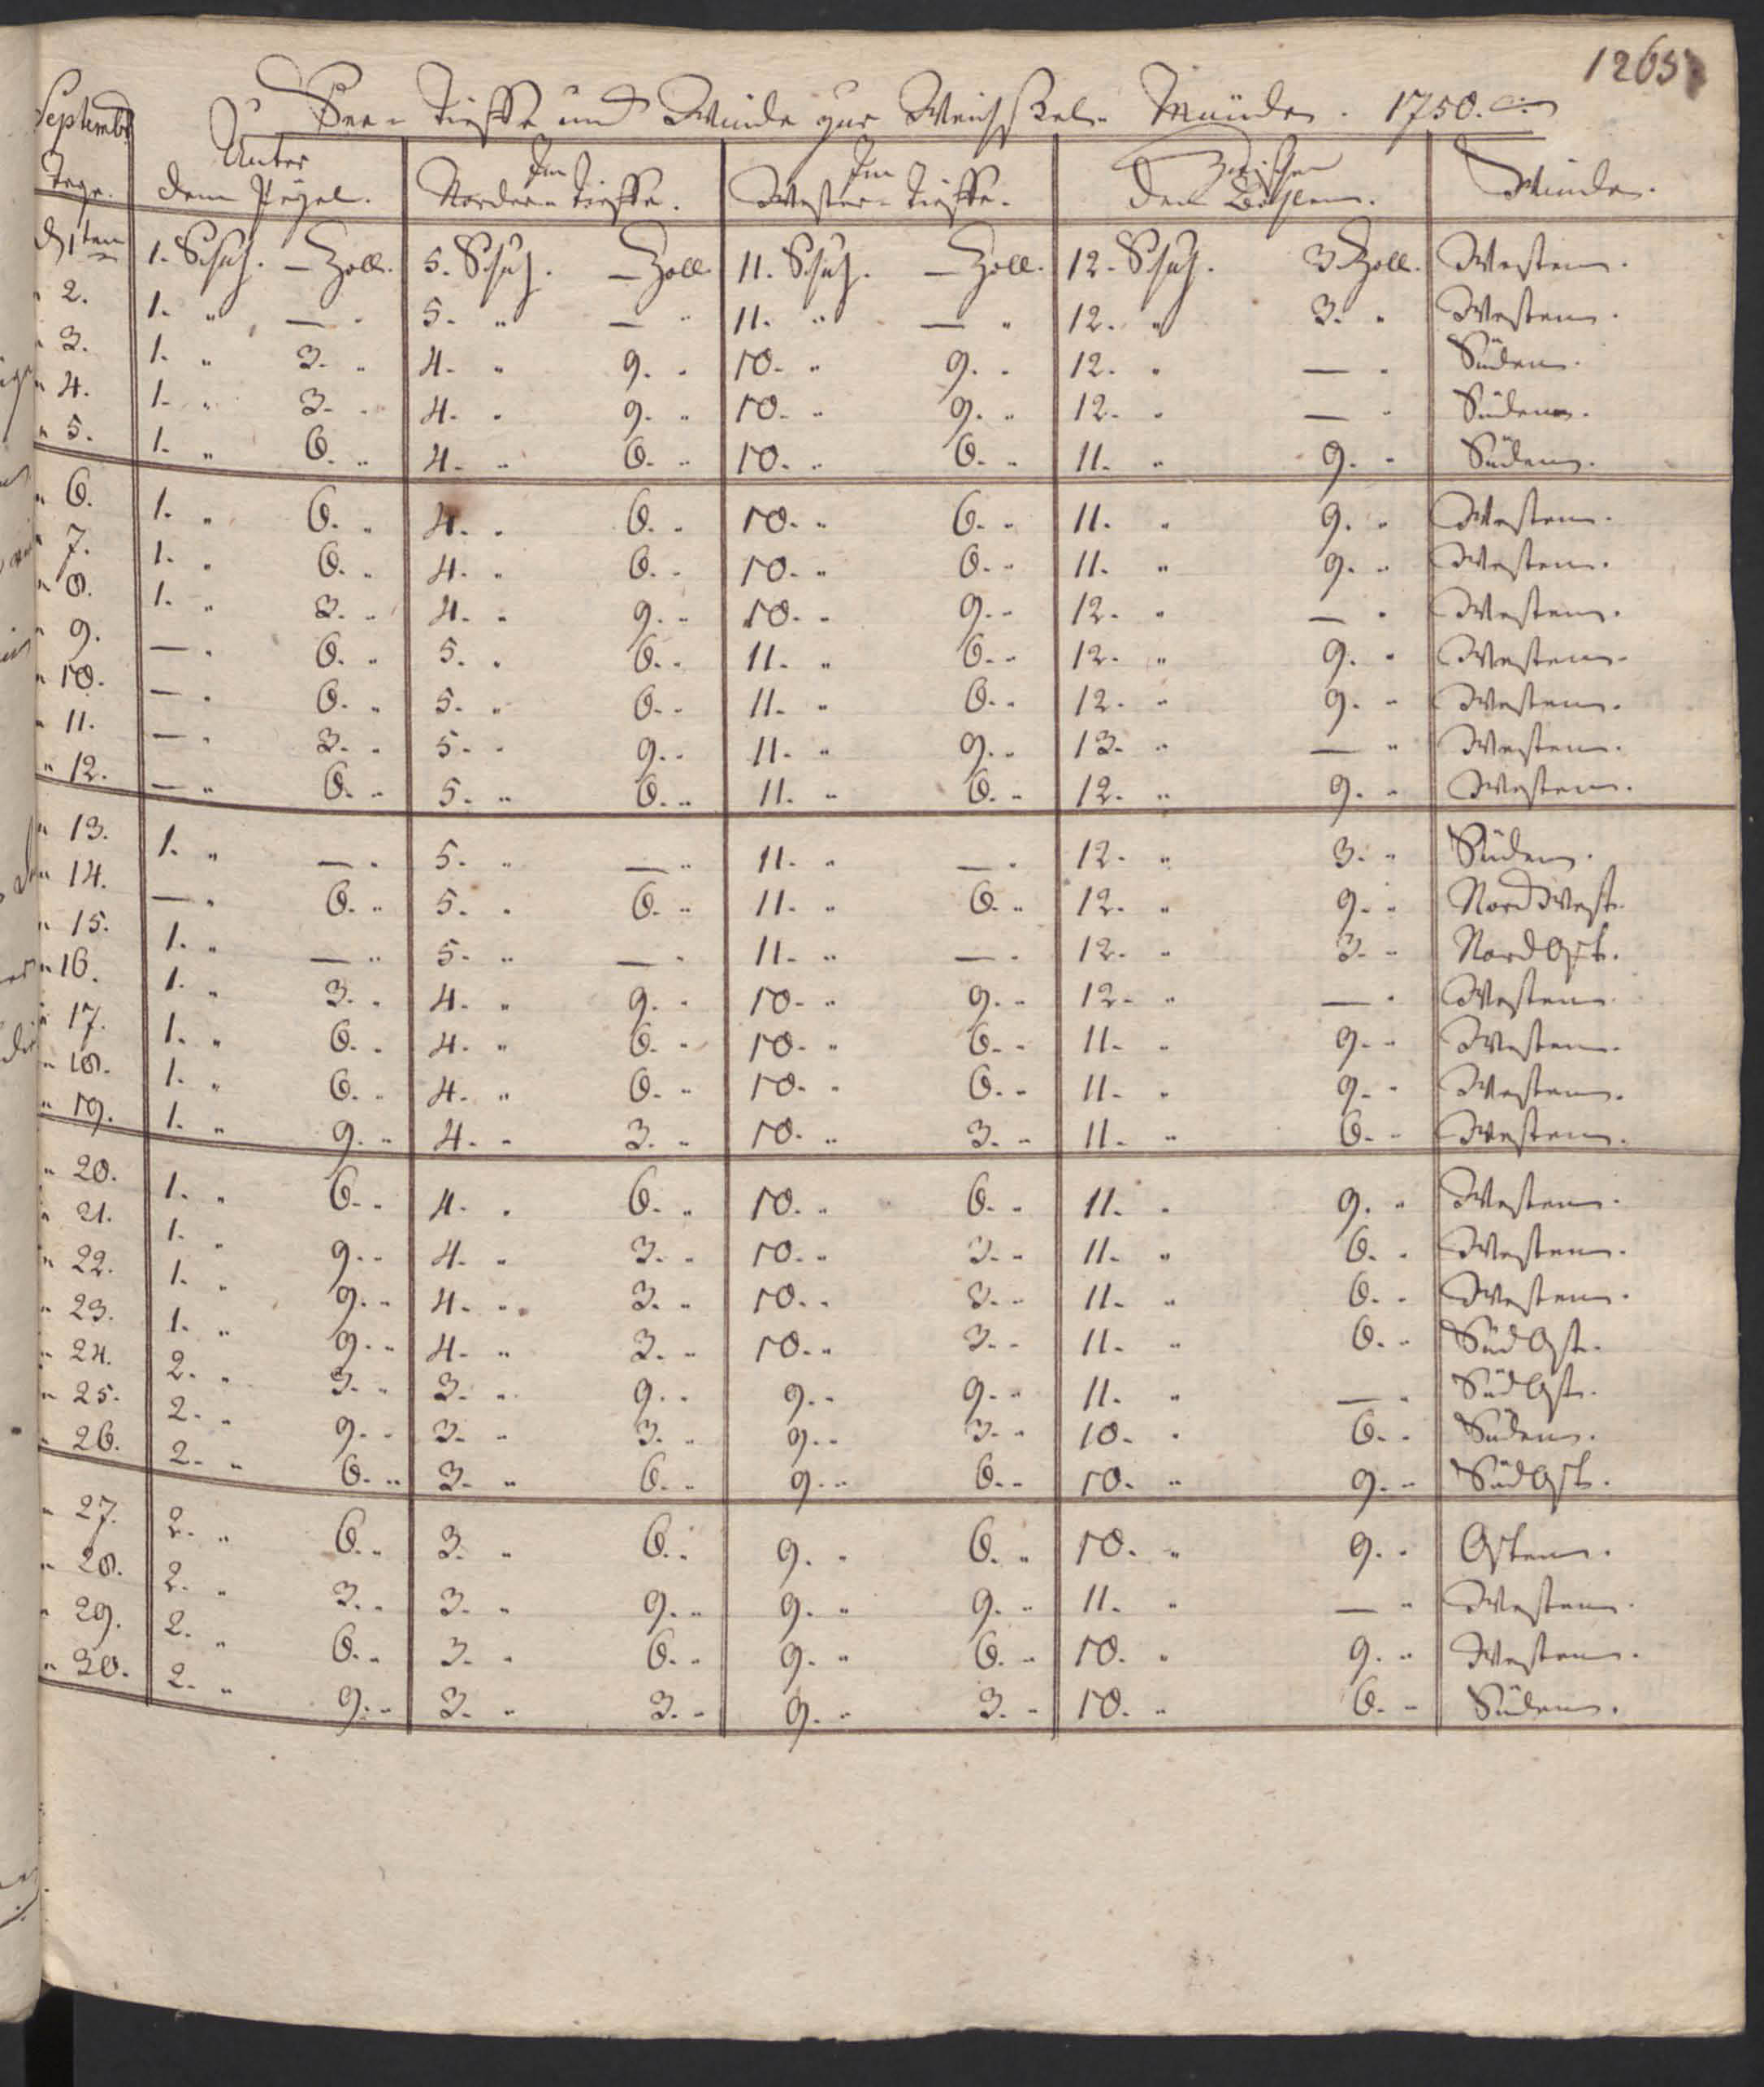 1265
See- Tieffe und Winde zur Weichssel- Münde. 1750.
Septembr. Tage. | Unter dem Pegel. | Im Norder- Tieffe. | Im Wester- Tieffe. | Zwischen den | Winde.
d 1ten | 1. Schuh. — Zoll. | 5. Schuh. — Zoll. | 11. Schuh. — Zoll. | 12. Schuh. 3. Zoll. | Westen.
" 2. | 1. " — " | 5. " — " | 11. " — " | 12. " 3. " | Westen.
" 3. | 1. " 3. " | 4. " 9. " | 10. " 9. " | 12. " — " | Süden.
" 4. | 1. " 3. " | 4. " 9. " | 10. " 9. " | 12. " — " | Süden.
" 5. | 1. " 6. " | 4. " 6. " | 10. " 6. " | 11. " 9. " | Süden.
" 6. | 1. " 6. " | 4. " 6. " | 10. " 6. " | 11. " 9. " | Westen.
" 7. | 1. " 6. " | 4. " 6. " | 10. " 6. " | 11. " 9. " | Westen.
" 8. | 1. " 3. " | 4. " 9. " | 10. " 9. " | 12. " — " | Westen.
" 9. | — " 6. " | 5. " 6. " | 11. " 6. " | 12. " 9. " | Westen.
" 10. | — " 6. " | 5. " 6. " | 11. " 6. " | 12. " 9. " | Westen.
" 11. | — " 3. " | 5. " 9. " | 11. " 9. " | 13. " — " | Westen.
" 12. | — " 6. " | 5. " 6. " | 11. " 6. " | 12. " 9. " | Westen.
" 13. | 1. " — " | 5. " — " | 11. " — " | 12. " 3. " | Süden.
" 14. | — " 6. " | 5. " 6. " | 11. " 6. " | 12. " 9. " | NordWest.
" 15. | 1. " — " | 5. " — " | 11. " — " | 12. " 3. " | NordOst.
" 16. | 1. " 3. " | 4. " 9. " | 10. " 9. " | 12. " — " | Westen.
" 17. | 1. " 6. " | 4. " 6. " | 10. " 6. " | 11. " 9. " | Westen.
" 18. | 1. " 6. " | 4. " 6. " | 10. " 6. " | 11. " 9. " | Westen.
" 19. | 1. " 9. " | 4. " 3. " | 10. " 3. " | 11. " 6. " | Westen.
" 20. | 1. " 6. " | 4. " 6. " | 10. " 6. " | 11. " 9. " | Westen.
" 21. | 1. " 9. " | 4. " 3. " | 10. " 3. " | 11. " 6. " | Westen.
" 22. | 1. " 9. " | 4. " 3. " | 10. " 3. " | 11. " 6. " | Westen.
" 23. | 1. " 9. " | 4. " 3. " | 10. " 3. " | 11. " 6. " | SüdOst.
" 24. | 2. " 3. " | 3. " 9. " | 9. " 9. " | 11. " — " | SüdOst.
" 25. | 2. " 9. " | 3. " 3. " | 9. " 3. " | 10. " 6. " | Süden.
" 26. | 2. " 6. " | 3. " 6. " | 9. " 6. " | 10. " 9. " | SüdOst.
" 27. | 2. " 6. " | 3. " 6. " | 9. " 6. " | 10. " 9. " | Osten.
" 28. | 2. " 3. " | 3. " 9. " | 9. " 9. " | 11. " — " | Westen.
" 29. | 2. " 6. " | 3. " 6. " | 9. " 6. " | 10. " 9. " | Westen.
" 30. | 2. " 9. " | 3. " 3. " | 9. " 3. " | 10. " 6. " | Süden.